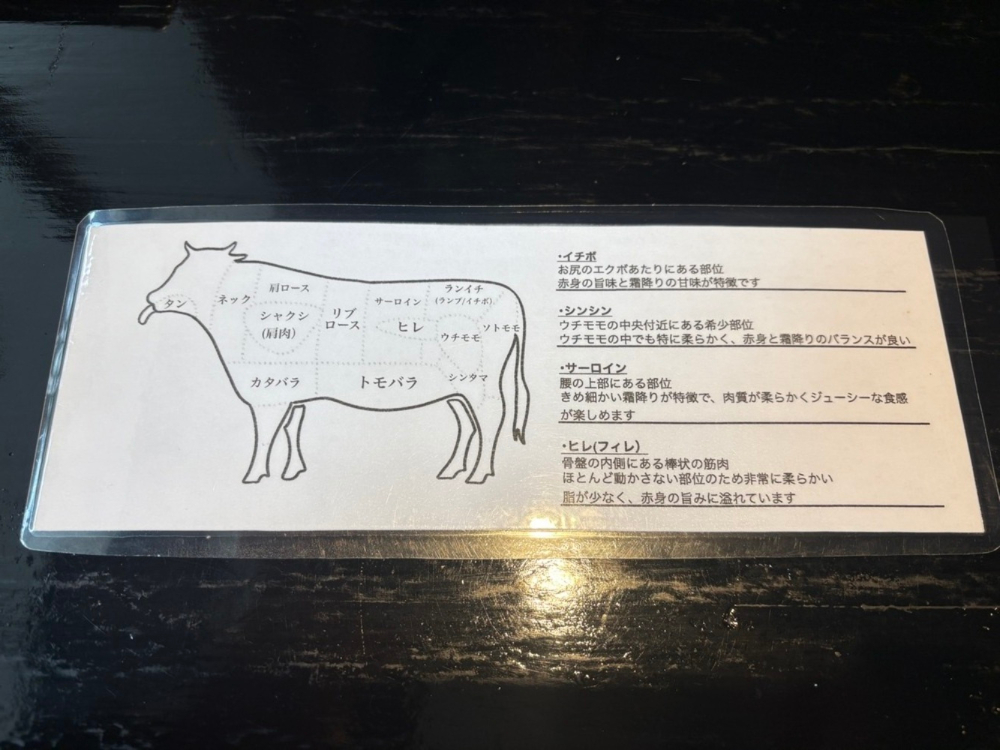 タン
ネック
肩ロース
シャクシ
(肩肉)
リブ
ロース
サーロイン
ヒレ
ランイチ
(ランプ/イチボ)
ウチモモ
ソトモモ
カタバラ
トモバラ
シンタマ
・イチボ
お尻のエクボあたりにある部位
赤身の旨味と霜降りの甘味が特徴です
・シンシン
ウチモモの中央付近にある希少部位
ウチモモの中でも特に柔らかく、赤身と霜降りのバランスが良い
・サーロイン
腰の上部にある部位
きめ細かい霜降りが特徴で、肉質が柔らかくジューシーな食感
が楽しめます
・ヒレ(フィレ)
骨盤の内側にある棒状の筋肉
ほとんど動かさない部位のため非常に柔らかい
脂が少なく、赤身の旨みに溢れています